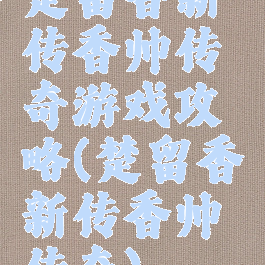 楚留香新
传香帅传
奇游戏攻
略(楚留香
新传香帅
传奇)